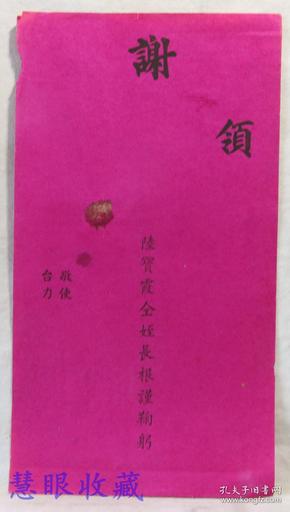 領
謝
陸寶霞仝姪長根謹鞠躬
敬使
台力
慧眼收藏
孔夫子旧书网